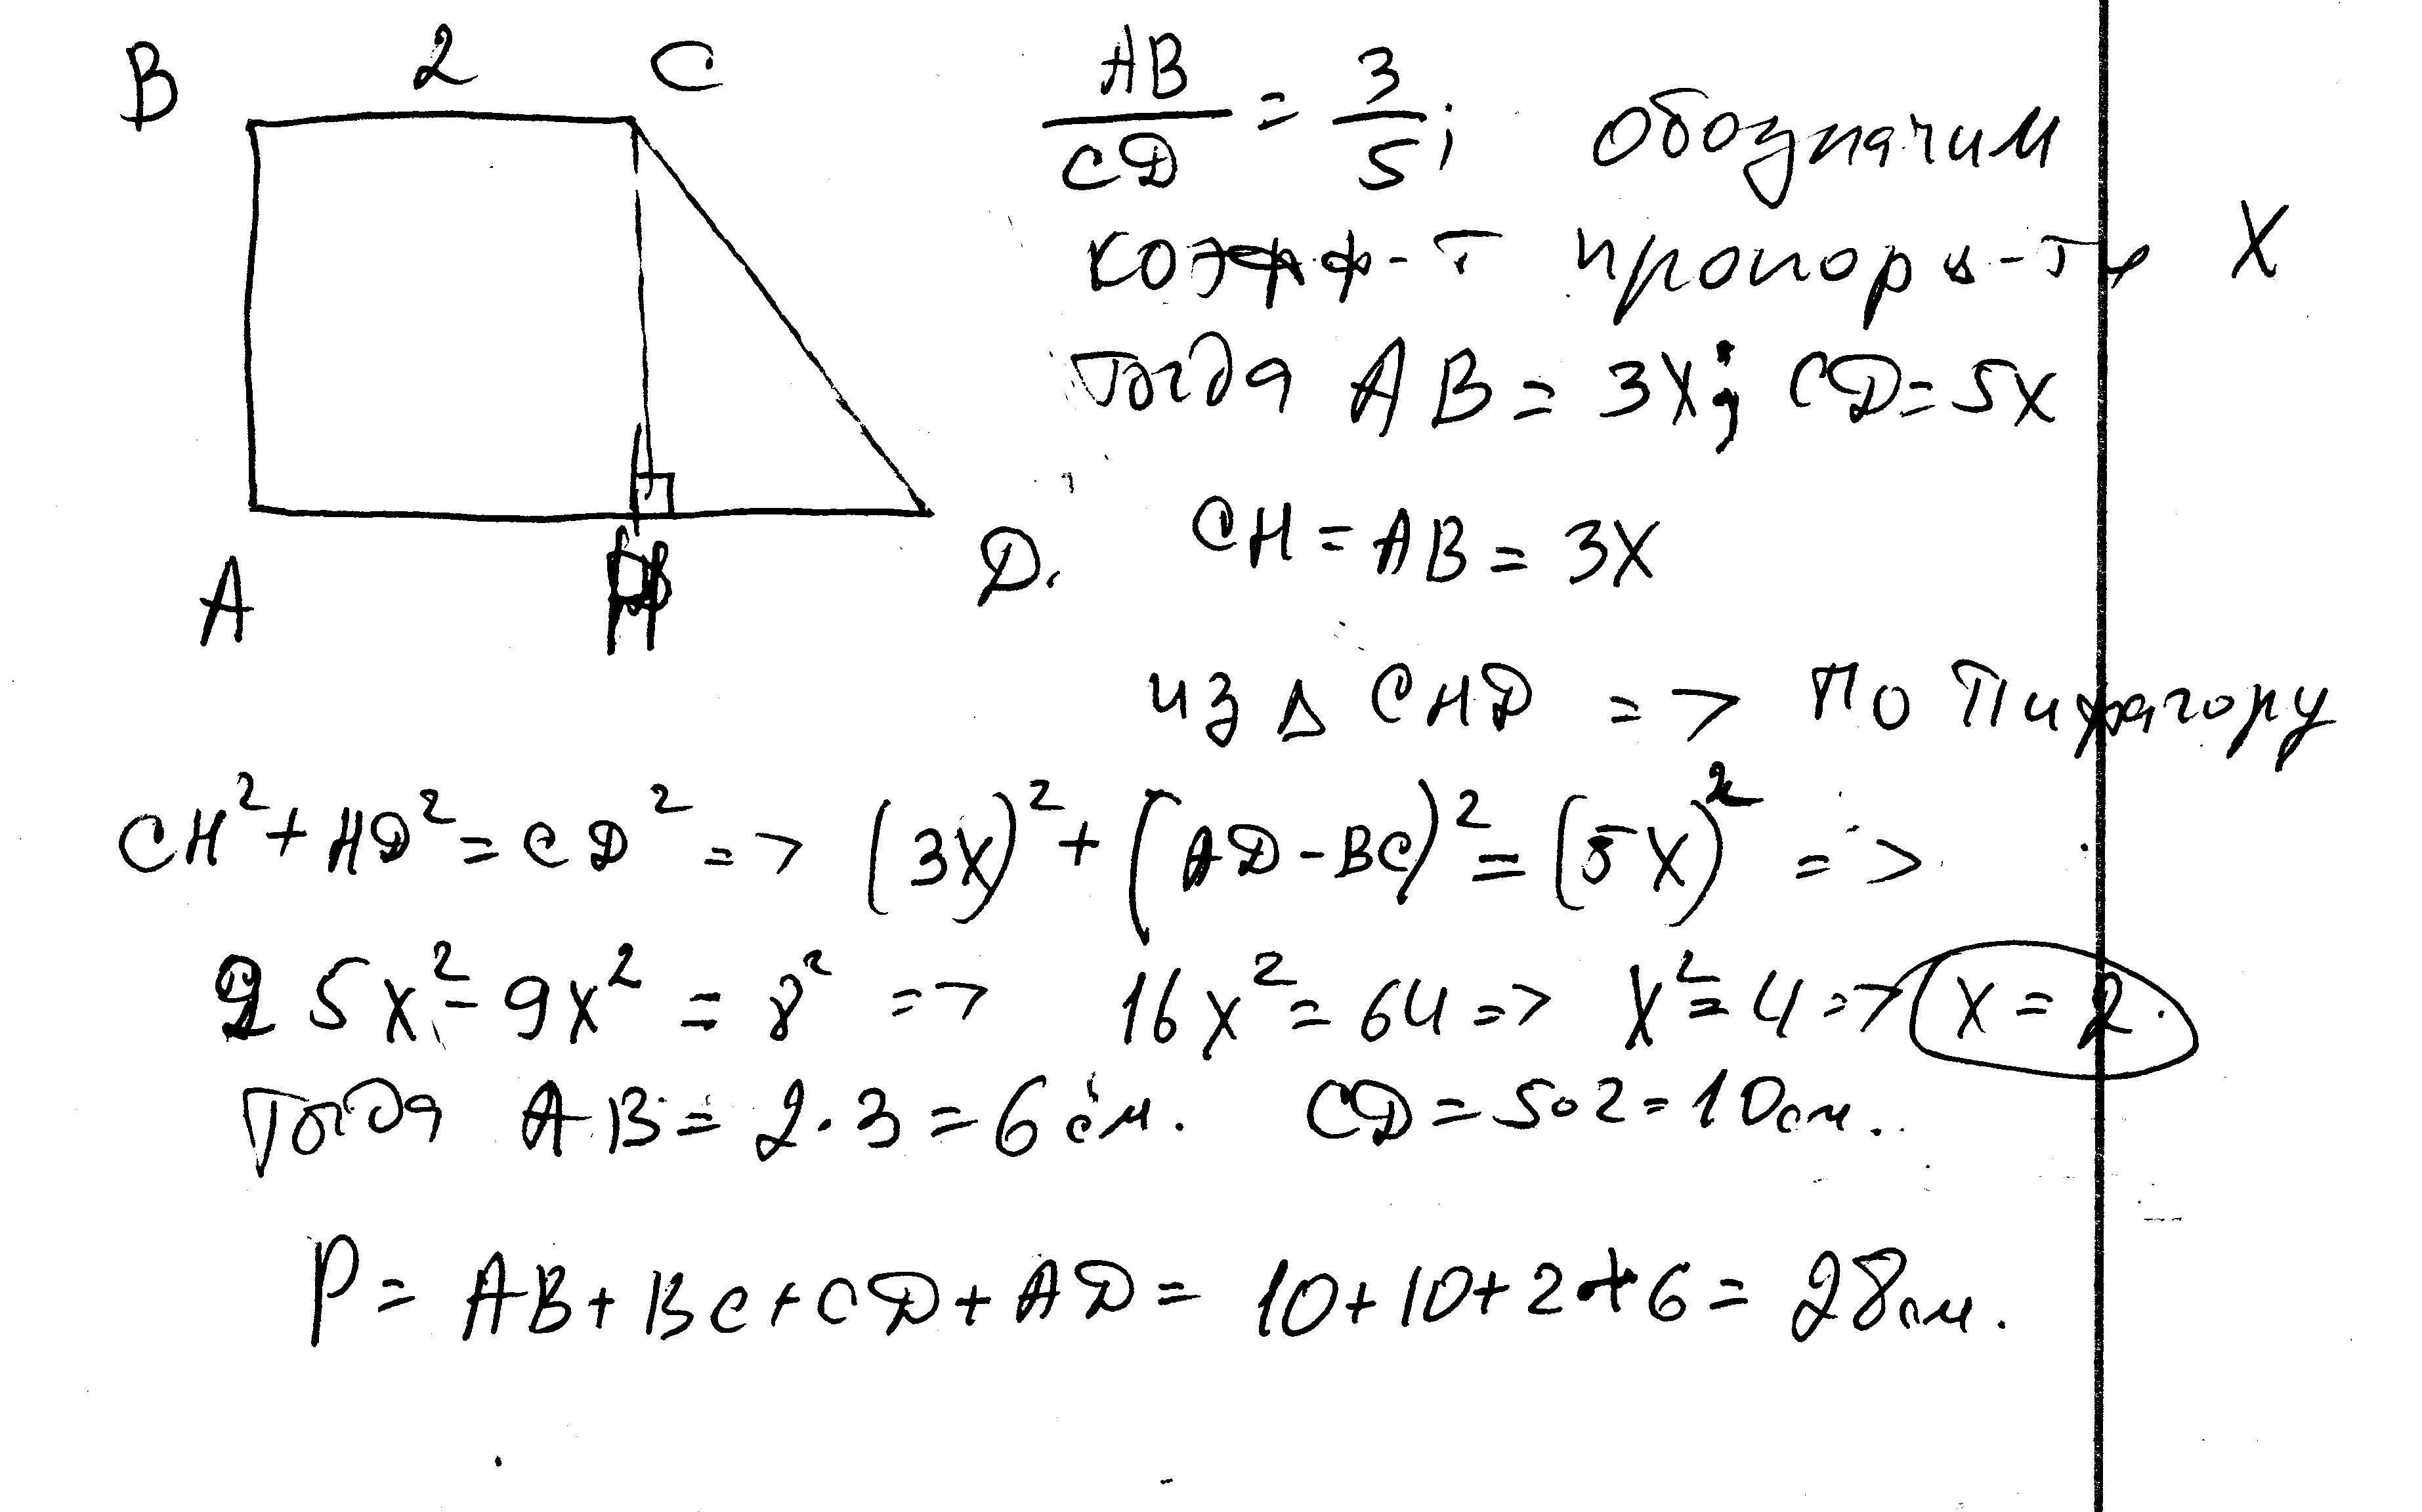 B 2 C
AB/CD = 3/5; обозначим
коэфф-т пропорц-ти X
тогда AB = 3X; CD = 5X
A H D.
CH = AB = 3X
из Δ CHD => по Пифагору
CH² + HD² = CD² => (3X)² + (AD - BC)² = (5X)² =>
25X² - 9X² = 8² => 16X² = 64 => X² = 4 => X = 2.
Тогда AB = 2·3 = 6 см. CD = 5·2 = 10 см.
P = AB + BC + CD + AD = 10 + 10 + 2 + 6 = 28 см.